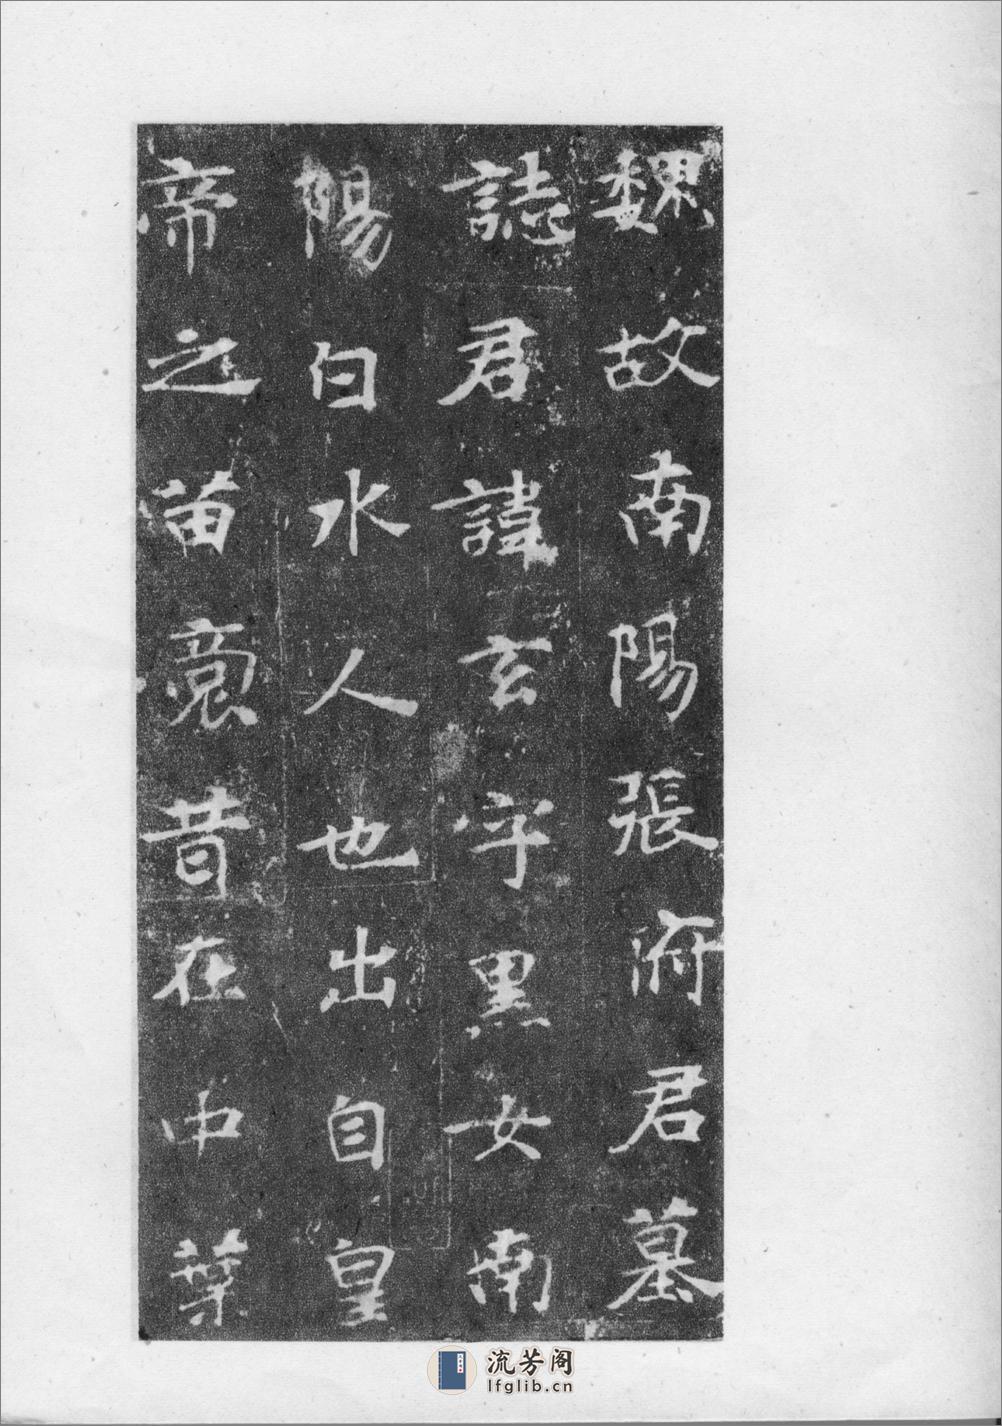 魏故南陽張府君墓
誌君諱玄字黑女南
陽白水人也出自皇
帝之苗裔昔在中葉
流芳阁
lfglib.cn